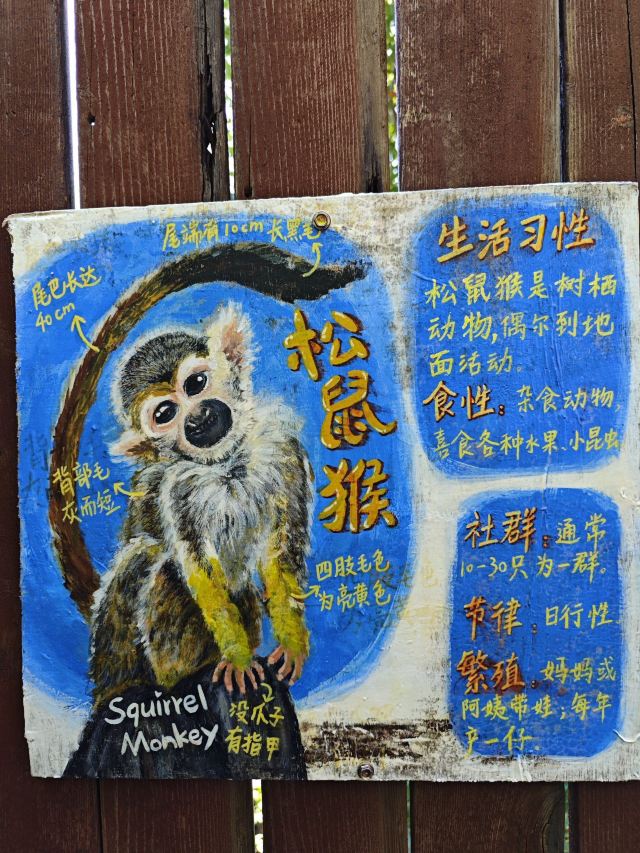 尾端有10cm长黑毛
尾巴长达
40cm
松鼠猴
背部毛
灰而短
四肢毛色
为亮黄色
Squirrel
Monkey
没爪子
有指甲
生活习性
松鼠猴是树栖
动物,偶尔到地
面活动。
食性：杂食动物,
喜食各种水果、小昆虫
社群：通常
10-30只为一群。
节律：日行性
繁殖：妈妈或
阿姨带娃；每年
产一仔.